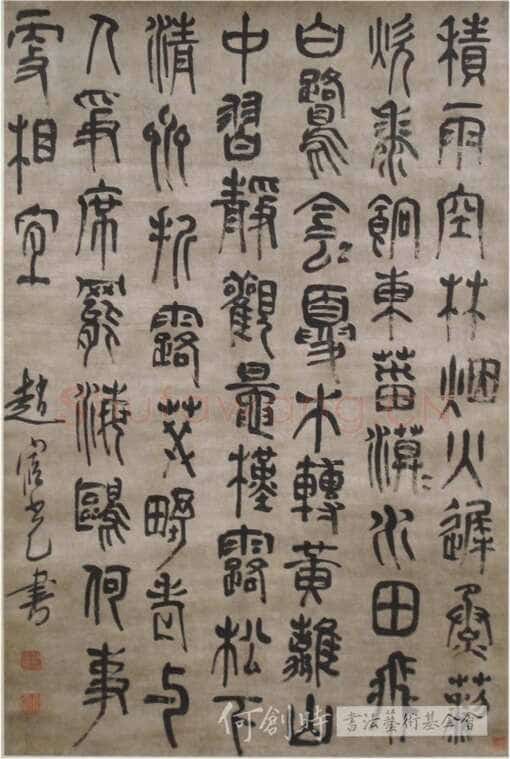 積雨空林烟火遲蒸藜
炊黍餉東菑漠〻水田飛
白鷺侌〻夏木轉黃離山
中習靜觀鼂槿露松下
清齋折露葵野老与
人爭席罷海鷗何事
相
趙宧光書
何創時 書法藝術基金會